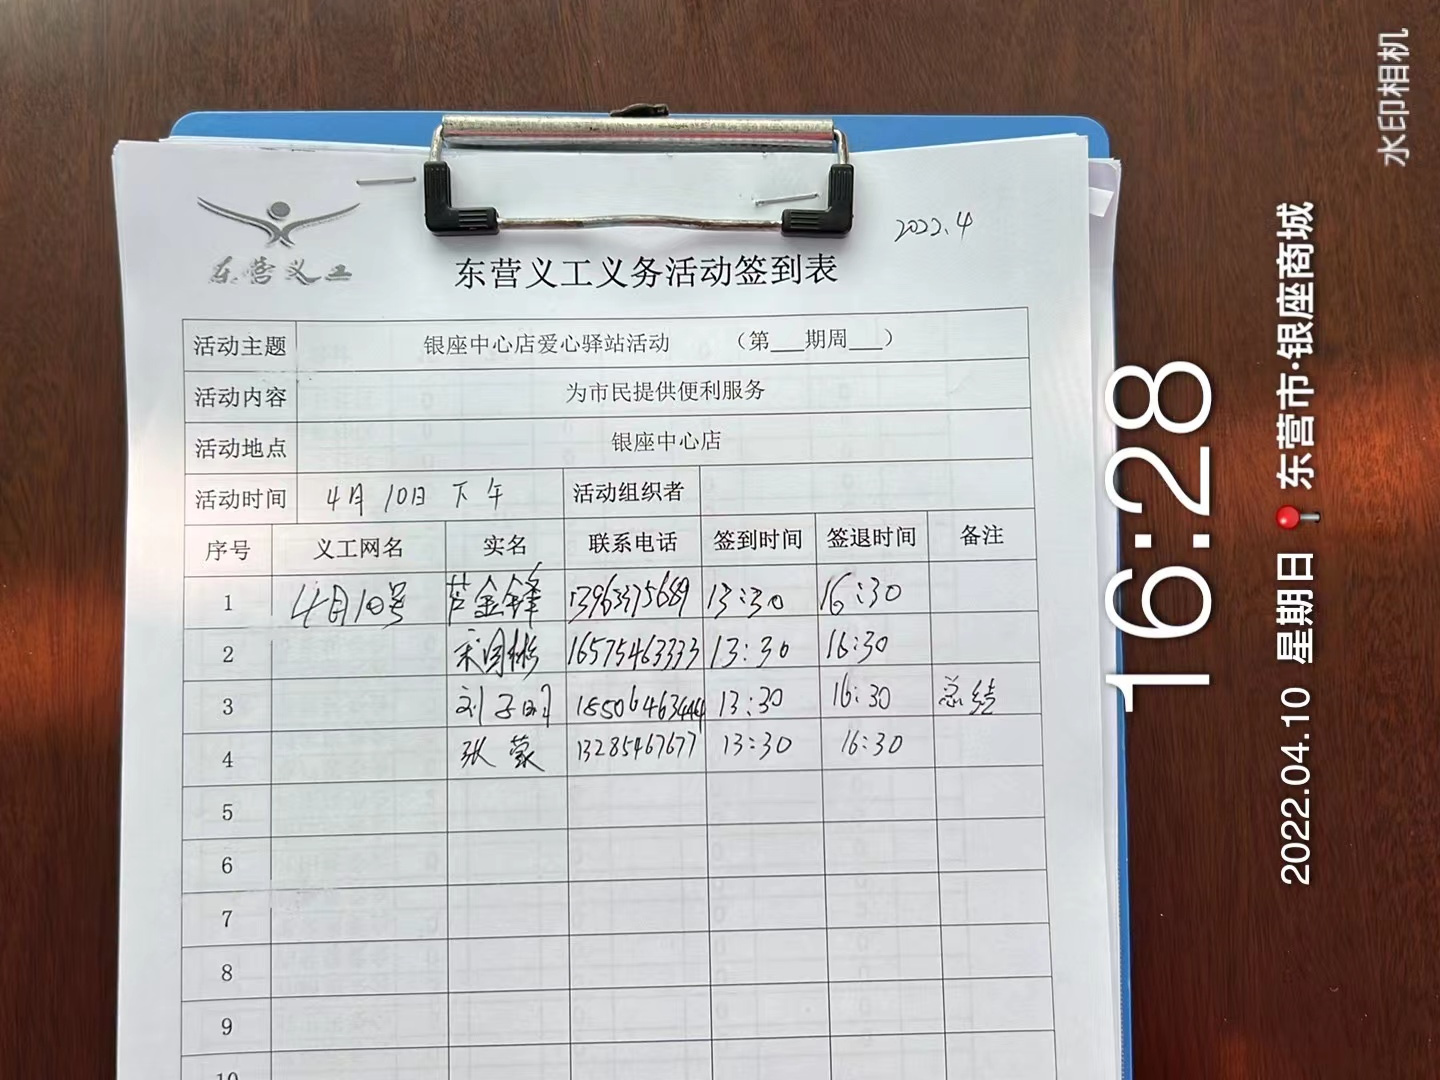 2022.4
东营义工
东营义工义务活动签到表
活动主题 银座中心店爱心驿站活动 （第___期周___）
活动内容 为市民提供便利服务
活动地点 银座中心店
活动时间 4月10日 下午 活动组织者
序号 义工网名 实名 联系电话 签到时间 签退时间 备注
1 4月10号 芦金锋 13963375689 13:30 16:30
2 宋国彬 16575463333 13:30 16:30
3 刘子明 18506463444 13:30 16:30 总结
4 张蒙 13285467677 13:30 16:30
5
6
7
8
9
10
16:28
2022.04.10 星期日 东营市·银座商城
水印相机